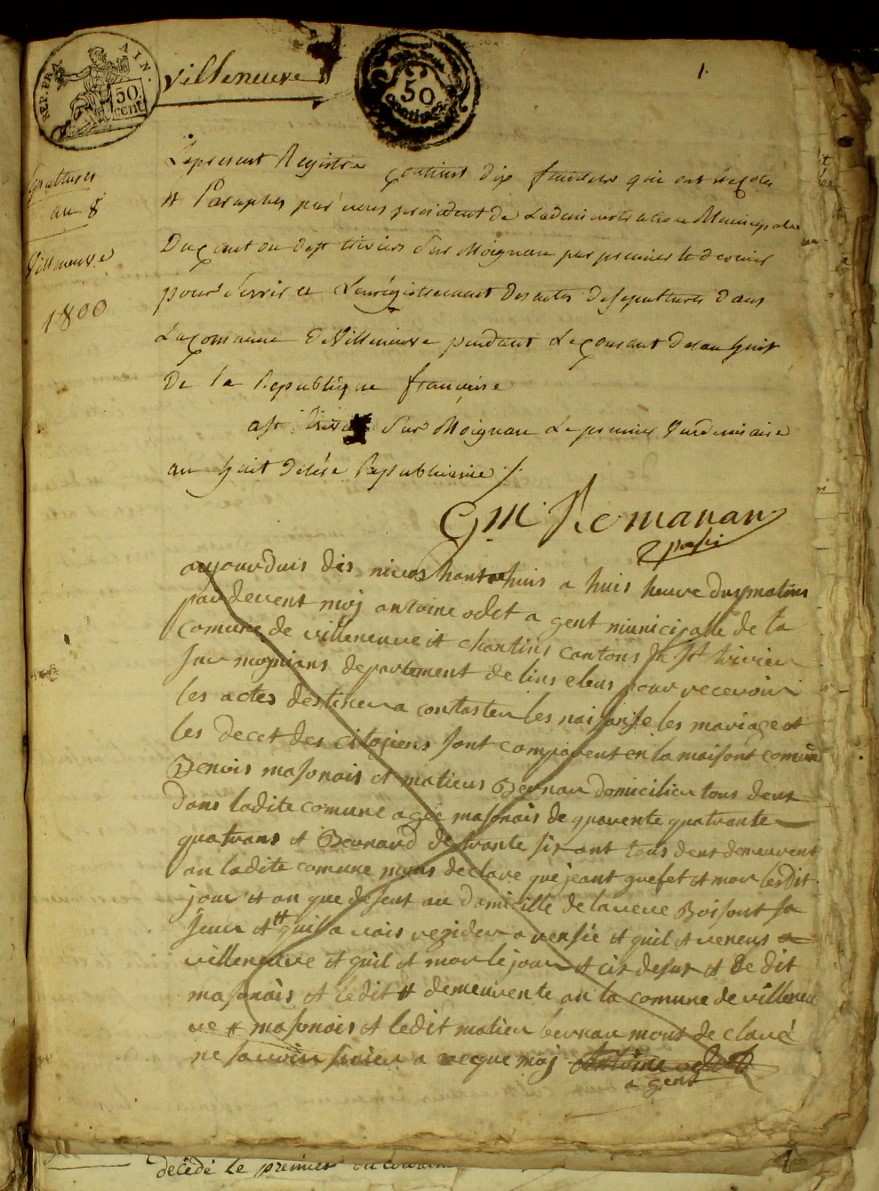 REP. FRA. AIN.
50 cent
villeneuve
50 centimes
1.
sepultures
an 8
Villeneuve
1800
Le present Registre contient dix feuillets qui ont été cotés
et Paraphés par nous president de Ladministration Municipale
Du canton de St triviers Sur Moignan par premier et dernier
pour Servir a Lenrégistrement des actes de sepultures dans
La Commune De Villeneuve pendant Le courant de lan huit
De la Republique francaise
a St Sur Moignan Le premier Vendemiaire
an huit de lére Republicaine
G M Romanan
aujourduis dis nivos hant huis a huis heure du matins
par devent moj antoine odet a gent municipalle de la
comune de villeneuve et chantins cantons St trivier
sur mognians departement de lins eleus pour recevoir
les actes destiner a contaster les naisanse les mariage et
les decet des citogiens sont comparent en la maisont comune
Benois masonais et matieus Bernar domicilier tous deus
dans ladite comune agée masonais de quarente quatrante
quatrans et Bernard de trante sis ant tous deus demeurent
an ladite comune mons declare que jeant et mor ledit
jour et an que desent au domicille de laveve Boisont sa
seur et quil avais resider a et quil et venens a
villeneuve et quil et mor le jour et cis desus et Le dit
masonais et ledit et demeurente an la comune de villeneu
ve et masonais et ledit matieu bernar mont de claré
ne savoir sinier a vecque moj antoine odet
a gent
décédé le premier du courant